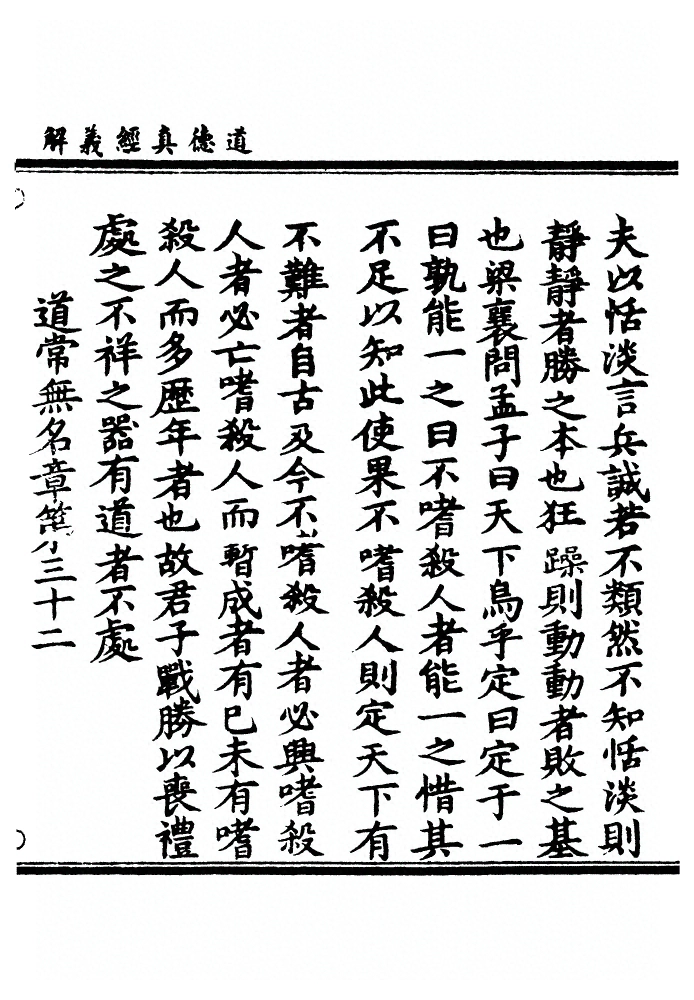 道德真經義解
夫以恬淡言兵誠若不類然不知恬淡則
靜靜者勝之本也狂躁則動動者敗之基
也梁襄問孟子曰天下烏乎定曰定于一
曰孰能一之曰不嗜殺人者能一之惜其
不足以知此使果不嗜殺人則定天下有
不難者自古及今不嗜殺人者必興嗜殺
人者必亡嗜殺人而暫成者有已未有嗜
殺人而多歷年者也故君子戰勝以喪禮
處之不祥之器有道者不處
道常無名章第三十二